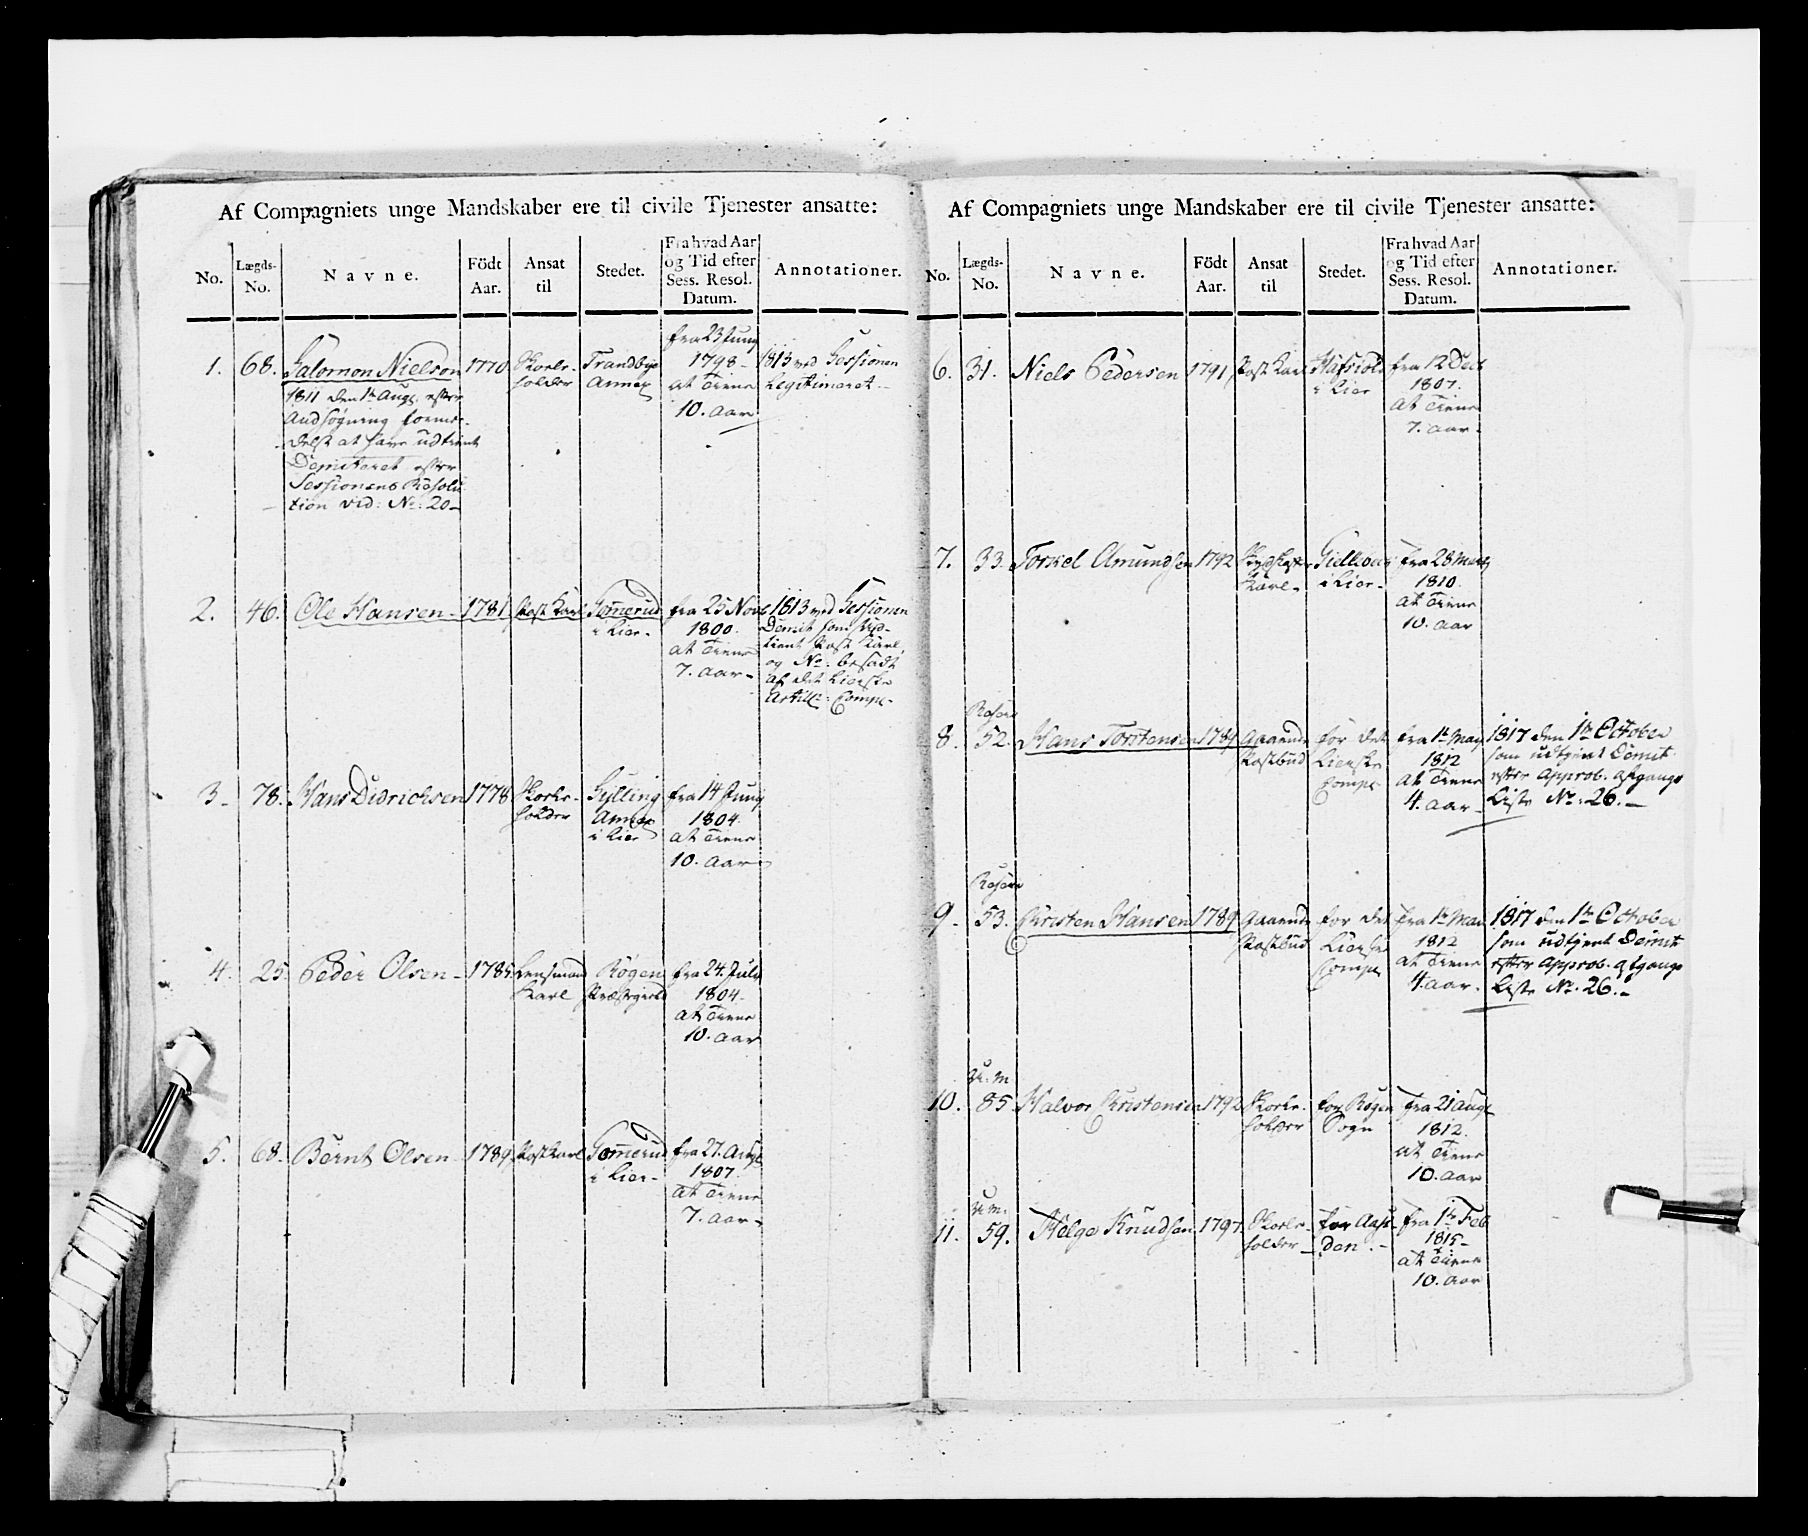 Af Compagniets unge Mandskaber ere til civile Tjenester ansatte:
No. Lægds-No. Navne. Födt Aar. Ansat til Stedet. Fra hvad Aar og Tid efter Sess. Resol. Datum. Annotationer.
1. 68. Salomon Nielsen 1770 Trandbye Annex
fra 23 Juny
1798-
at Tiene
10. Aar
1813 ved Sessionen
Legitimeret
1811 den 1te Aug. efter
Andsøgning formedelst at have udtient
Demiteret efter
Sessionens Resolution vid: No: 20-
2. 46. Ole Hansen- 1781 Post Karl Gomerud
i Lier-
fra 25 Nov
1800.
at Tiene
7. Aar-
1813 ved Sessionen
Demit som udtient Post Karl,
og No: besadt
af det Lierske
Artill: Comp.
3- 78. Hans Didrichsen 1778 Gylling
Annex
i Lier
fra 14 Juny
1804.
at Tiene
10. Aar
4. 25 Peder Olsen- 1785 Lensmand
Karl
Røgen
Præstegield
fra 24. July
1804-
at Tiene
10. Aar
5. 68. Bernt Olsen 1789 Post Karl Gomerud
i Lier-
fra 27. Aug
1807.
at Tiene
7. Aar-
Af Compagniets unge Mandskaber ere til civile Tjenester ansatte:
No. Lægds-No. Navne. Födt Aar. Ansat til Stedet. Fra hvad Aar og Tid efter Sess. Resol. Datum. Annotationer.
6. 31. Niels Pedersen 1791 Post Karl
i Lier
fra 12 Dec
1807.
at Tiene
7. Aar-
7. 33. Torkel Amundsen 1792
Karl-
i Lier-
fra 28 Marty
1810.
at Tiene
10. Aar
Reserv
8. 52. Hans Torstensen 1789 Gaaende
Postbud
for det
Lierske
Comp-
fra 1te May
1812
at Tiene
4. Aar-
1817 den 1te October
som udtjent Demit
efter Approb. afgangs
Liste No: 26.-
Reserv
9- 53. Christen Hansen 1789 Gaaende
Postbud
for det
Lierske
Comp
fra 1te May
1812
at Tiene
4. Aar-
1817 den 1te October
som udtjent Demit
efter Approb. afgangs
Liste No. 26.-
U. M
10. 85 Halvor Christensen 1792
for Røgen
Sogn
fra 21 Aug
1812.
at Tiene
10. Aar
U. M.
11. 59. Helge Knudsen 1797
fra 1te Feb
1815-
at Tiene
10. Aar